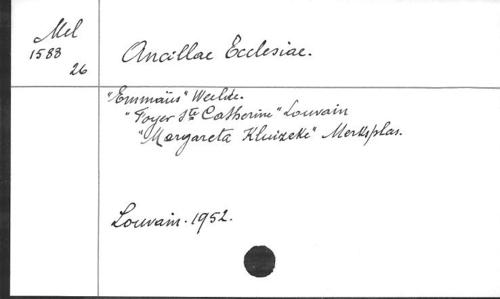 Mel
1588
26
Ancillae Ecclesiae.
"Emmaüs" Weelde.
"Foyer Ste Catherine" Louvain
"Margareta Kluizeke" Merksplas.
Louvain. 1952.